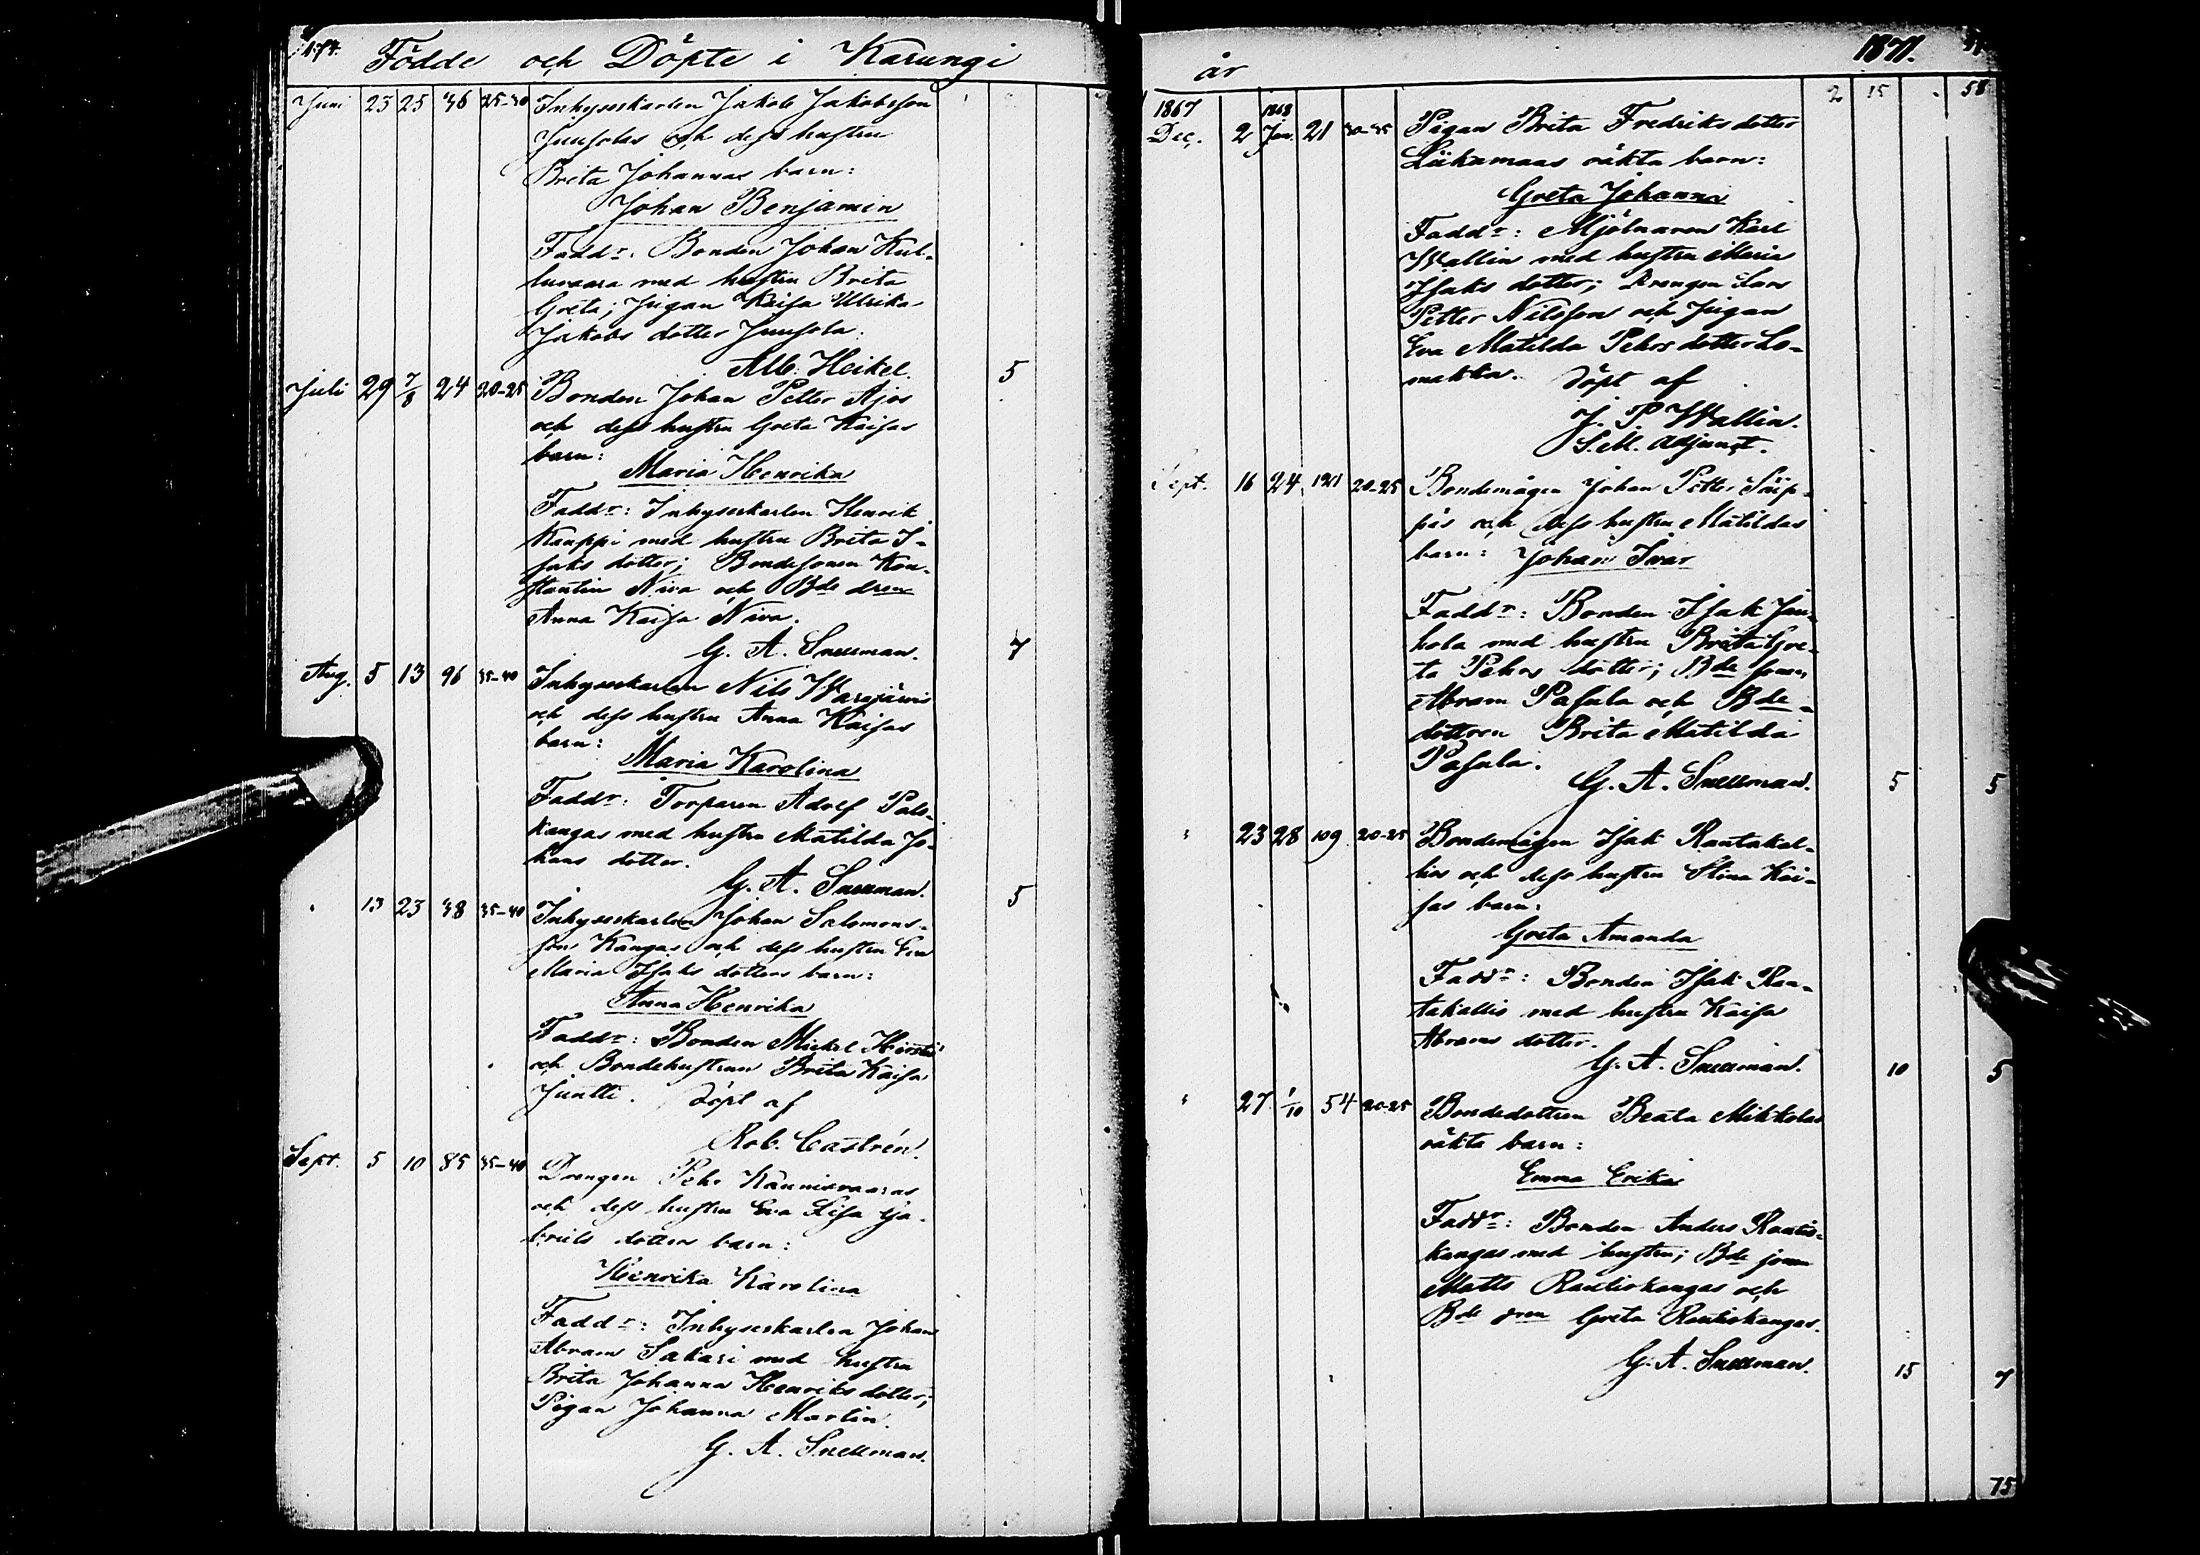 Födde och Döpte i Karungi
Juni 23 25 46 25-30 Inhyseskarlen Jakob Jakobsson
Juusolas och dess hustru
Brita Johannas barn:
Johan Benjamin
Faddr: Bonden Johan Kul-
luvaara med hustru Brita
Greta; Pigan Kaisa Ulrika
Jakobs dotter Juusola.
Alb. Heikel. 5
Juli 29 7/8 24 20-25 Bonden Johan Petter Ajos
och dess hustru Greta Kaisas
barn:
Maria Henrika
Faddr: Inhyseskarlen Henrik
Kauppi med hustru Brita I-
saks dotter; Bondesonen Kon-
stantin Niva och Bde dren
Anna Kaisa Niva.
G. A. Snellman. 7
Aug. 5 13 96 35-40 Inhyseskarlen Nils Warajärvis
och dess hustru Anna Kaisas
barn:
Maria Karolina
Faddr: Torparen Adolf Palo-
kangas med hustru Matilda Jo-
hans dotter.
G. A. Snellman. 5
13 23 48 35-40 Inhyseskarlen Johan Salomons-
son Kangas och dess hustru Eva
Maria Isaks dotters barn:
Anna Henrika
Faddr: Bonden Mickel
och Bondehustrun Brita Kaisa
Juntti. Döpt af
Rob. Castrén.
Sept. 5 10 85 35-40 Drengen Pehr Kaunisvaaras
och dess hustru Eva Lisa Ga-
briels dotters barn:
Henrika Karolina
Faddr: Inhyseskarlen Johan
Abram Sakari med hustru
Brita Johanna Henriks dotter;
Pigan Johanna Martin.
G. A. Snellman.
år 1871.
2 15 58
1867 1868
Dec. 2 Jan. 21 30-35 Pigan Brita Fredriks dotter
Liikamaas oäkta barn:
Greta Johanna
Faddr: Mjölnaren Karl
Wallin med hustru Maria
Isaks dotter; Drengen Lars
Petter Nilsson och Pigan
Eva Matilda Pehrs dotter Lo-
makka. Döpt af
J. P. Wallin.
S.M. Adjunct.
Sept. 16 24 121 20-25 Bondemågen Johan Petter Säip-
päs och dess hustru Matildas
barn: Johan Ivar
Faddr: Bonden Isak Jau-
hola med hustru Brita Gre-
ta Pehrs dotter; Bde sonen
Abram Pasula och Bde-
dottren Brita Matilda
Pasula.
G. A. Snellman. 5 5
" 23 28 109 20-25 Bondemågen Isak Rautakal-
lios och dess hustru Stina Kai-
sas barn:
Greta Amanda
Faddr: Bonden Isak Rau-
takallio med hustru Kaisa
Abrams dotter.
G. A. Snellman. 10 5
" 27 1/10 54 20-25 Bondedottren Beata Mikkolas
oäkta barn:
Emma Erika
Faddr: Bonden Anders Rautio-
kangas med hustru; Bde sonen
Matts Rautiokangas och
Bde dren Greta Rautiokangas.
G. A. Snellman. 15 7
75